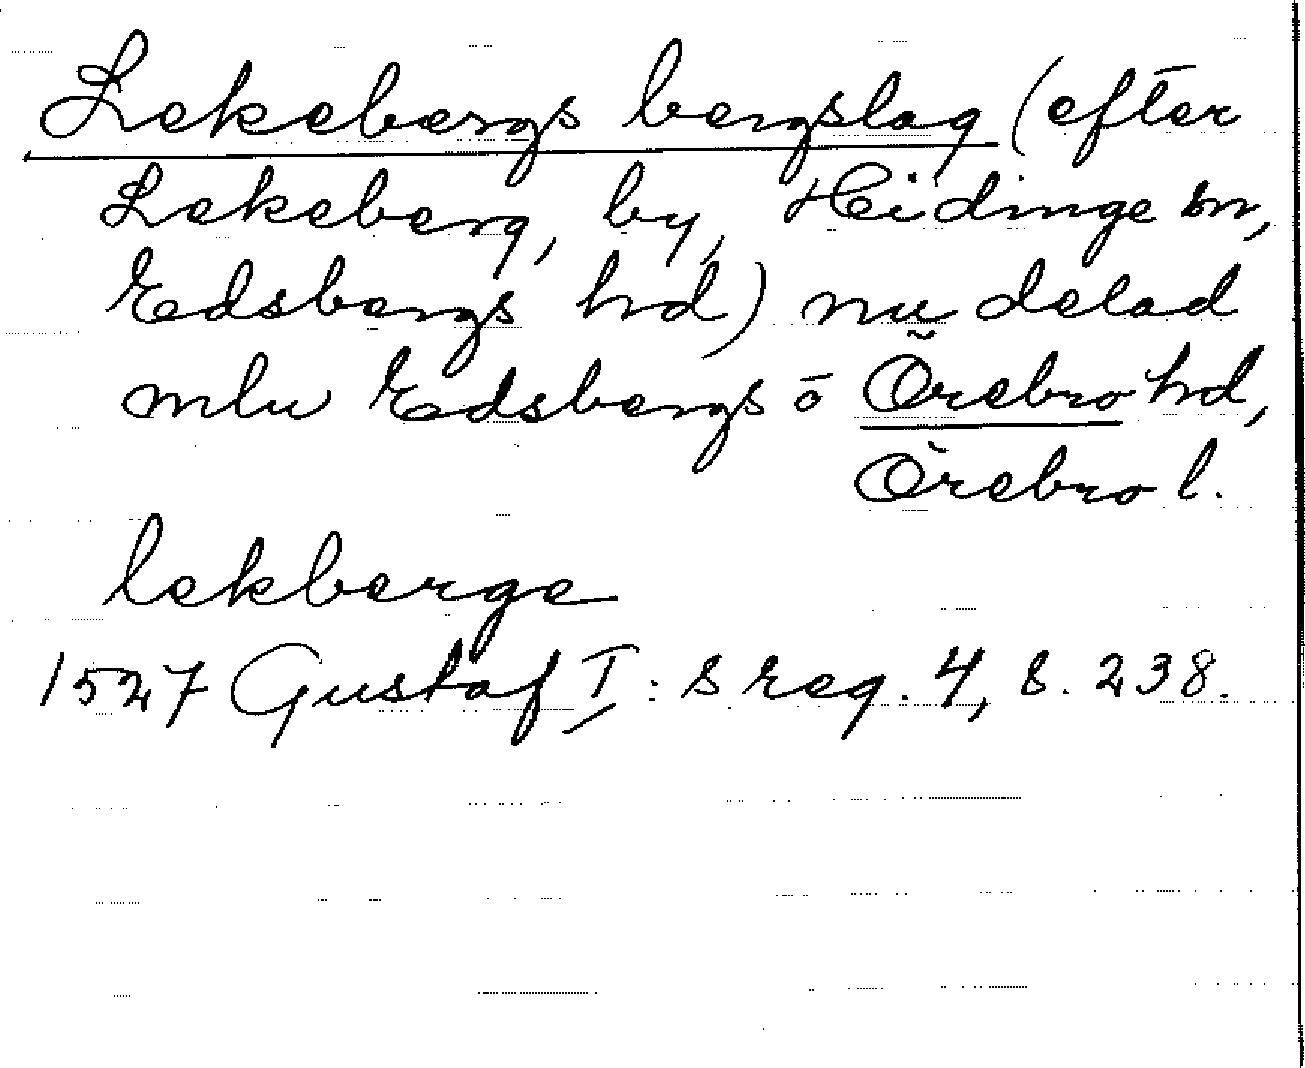 Lekebergs bergslag (efter
Lekeberg, by, Hidinge sn,
Edsbergs hd) nu delad
mlu Edsbergs o Örebro hd,
Örebro l.
lekberge
1527 Gustaf I: s reg. 4, s. 238.